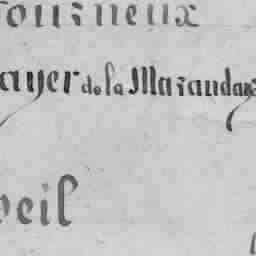 ourneux
ayer de la Marauda
eil